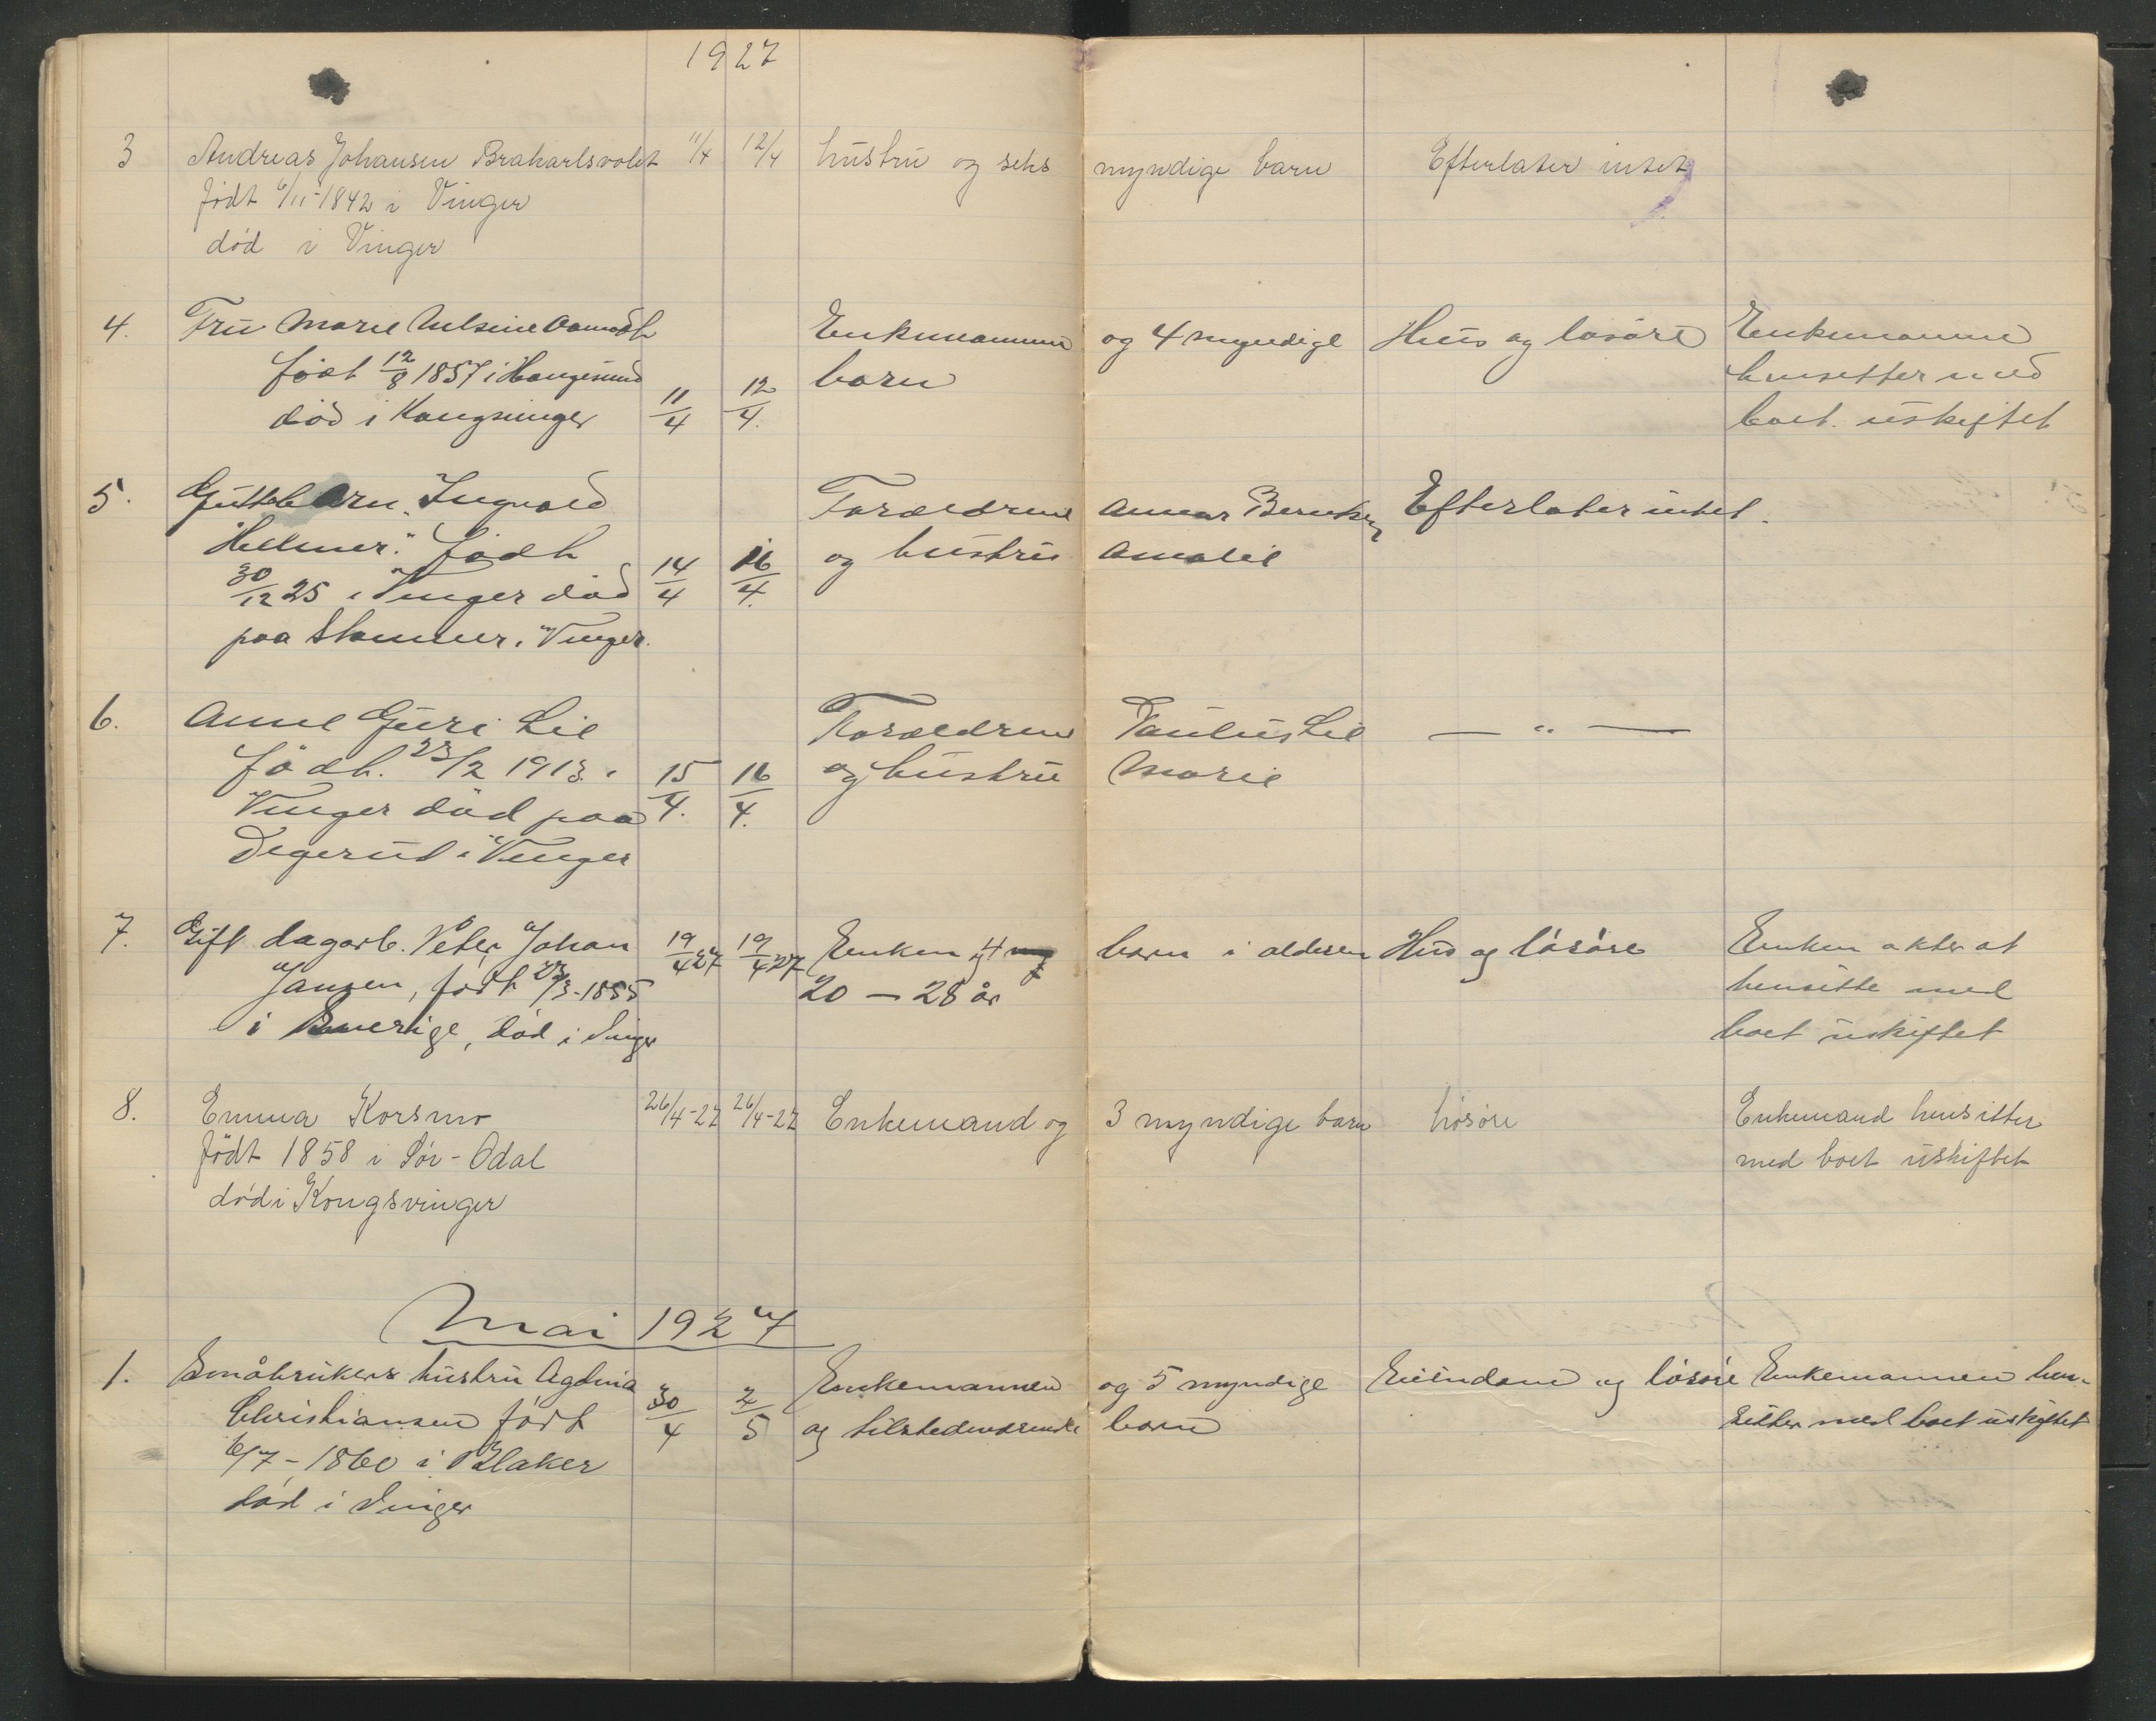 1927
3 Andreas Johansen 11/4 12/4 hustru og seks myndige barn Efterlater intet
født 6/11-1842 i Vinger
død i Vinger
4. Fru Marie Enkemannen og 4 myndige Hus og løsøre Enkemannen
født 12/8 1857 i Haugesund 11/4 12/4. barn hensitter med
død i Kongsvinger boet uskiftet
5. Guttebarn "Ingvald Forældrene Efterlater intet.
Helmer." født 14/4 16/4. og hustru Amalie
30/12 25 i Vinger død
paa i Vinger.
6. Anne Guri Lie Forældrene Paulus Lie — " —
født. 23/2 1913 i 15/4. 16/4. og hustru Marie
Vinger død paa
Degerud i Vinger
7. Gift dagarb. Peter Johan 19/4 27 19/4 27 Enken og 4 barn i alderen Hus og løsøre Enken akter at
Jansen, født 23/3-1855 20 — 28 år hensitte med
i Sverige, død i Vinger boet uskiftet
8. Emma Korsmo 26/4-27 26/4-27 Enkemand og 3 myndige barn løsøre Enkemand hensitter
født 1858 i Sør-Odal med boet uskiftet
død i Kongsvinger
Mai 1927
1. Småbrukers hustru Enkemannen og 5 myndige Eiendom og løsøre Enkemannen hen-
Christiansen født 30/4 2/5 og tilstedeværende barn sitter med boet uskiftet
6/7-1860 i Blaker
død i Vinger